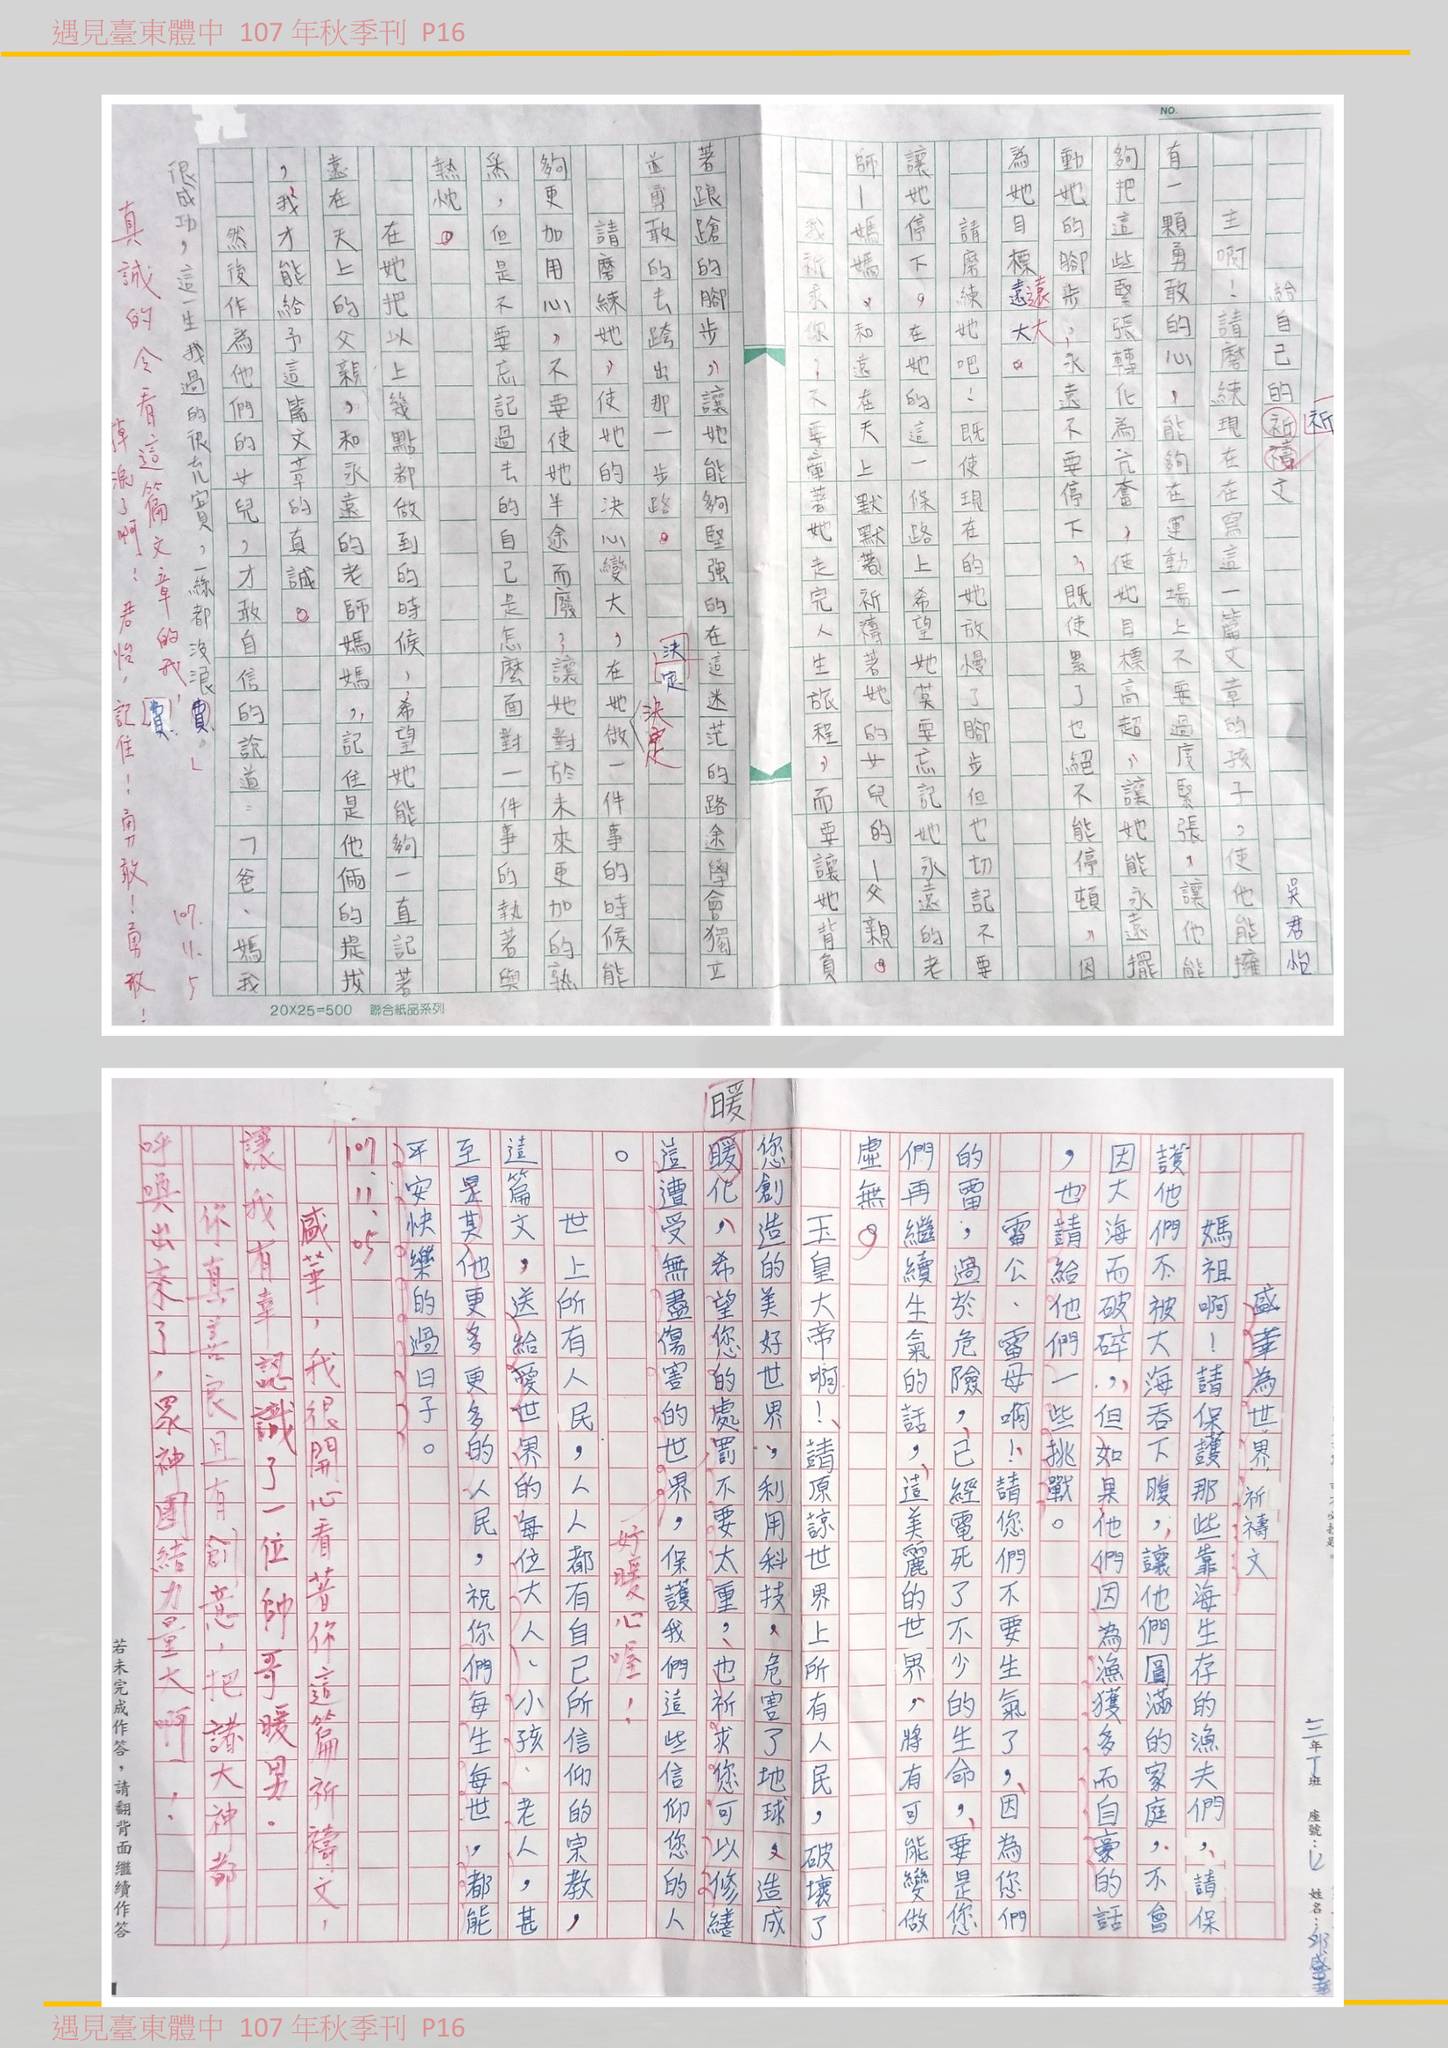 遇見臺東體中 107 年秋季刊 P16
NO.
給自己的祈禱文
祈
吳君怡
主啊！請磨練現在在寫這一篇文章的孩子，使他能擁
有一顆勇敢的心，能夠在運動場上不要過度緊張，讓他能
夠把這些緊張轉化為亢奮，使她目標高超，讓她能永遠擺
動她的腳步，永遠不要停下，既使累了也絕不能停頓，因
為她目標遠大。
遠大
請磨練她吧！既使現在的她放慢了腳步但也切記不要
讓她停下，在她的這一條路上希望她莫要忘記她永遠的老
師—媽媽，和遠在天上默默著祈禱著她的女兒的—父親。
我祈求你，不要牽著她走完人生旅程，而要讓她背負
著踉蹌的腳步，讓她能夠堅強的在這迷茫的路途學會獨立
並勇敢的去跨出那一步路。
請磨練她，使她的決心變大，在她做一件事的時候能
決定
決定
夠更加用心，不要使她半途而廢，讓她對於未來更加的熟
悉，但是不要忘記過去的自己是怎麼面對一件事的執著與
熱忱。
在她把以上幾點都做到的時候，希望她能夠一直記著
遠在天上的父親，和永遠的老師媽媽，記住是他倆的提拔
，我才能給予這篇文章的真誠。
然後作為他們的女兒，才敢自信的說道：「爸、媽我
很成功，這一生我過的很充實，一絲都沒浪費。」
費
真誠的令看這篇文章的我，
掉淚了啊！君怡，記住！勇敢！勇敢！
107.11.5
20X25=500 聯合紙品系列
暖
三年丁班 座號：12 姓名：邱盛華
盛華為世界祈禱文
媽祖啊！請保護那些靠海生存的漁夫們，請保
護他們不被大海吞下腹，讓他們圓滿的家庭，不會
因大海而破碎，但如果他們因為漁獲多而自豪的話
，也請給他們一些挑戰。
雷公、雷母啊！請您們不要生氣了，因為您們
的雷，過於危險，已經電死了不少的生命，要是您
們再繼續生氣的話，這美麗的世界，將有可能變做
虛無。
玉皇大帝啊！請原諒世界上所有人民，破壞了
您創造的美好世界，利用科技，危害了地球，造成
暖化，希望您的處罰不要太重，也祈求您可以修繕
這遭受無盡傷害的世界，保護我們這些信仰您的人
。
好暖心喔！
世上所有人民，人人都有自己所信仰的宗教，
這篇文，送給愛世界的每位大人、小孩、老人，甚
至是其他更多更多的人民，祝你們每生每世，都能
平安快樂的過日子。
107.11.05
盛華，我很開心看著你這篇祈禱文，
讓我有幸認識了一位帥哥暖男。
你真善良且有創意，把諸大神都
呼喚出來了，眾神團結力量大啊！
若未完成作答，請翻背面繼續作答
遇見臺東體中 107 年秋季刊 P16